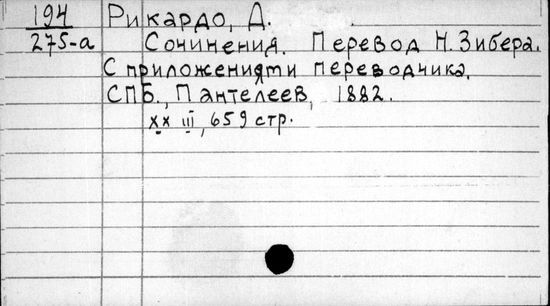 194 Рикардо, Д.
275-а Сочинения. Перевод Н. Зибера.
С приложенияти переводчика.
СПБ., Пантелеев, 1882.
XX III, 659 стр.